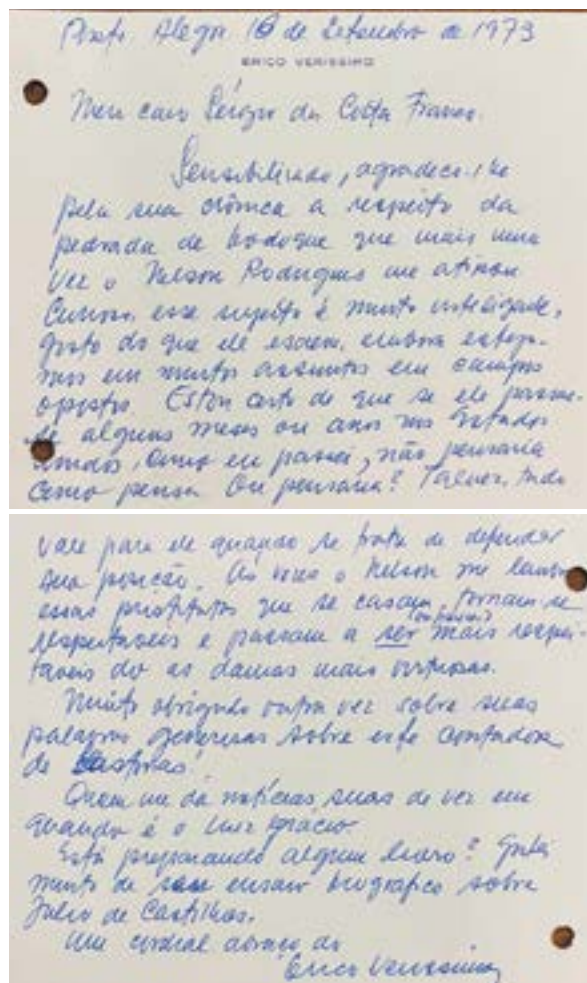 Porto Alegre 16 de Setembro de 1973
ERICO VERISSIMO
Meu caro Sérgio da Costa Franco.
Sensibilizado, agradeço-lhe
pela sua crônica a respeito da
pedrada de bodoque que mais uma
vez o Nelson Rodrigues me atirou
Curioso, esse sujeito é muito inteligente,
gosto do que ele escreve, embora esteja-
mos em muitos assuntos em campos
opostos. Estou certo de que se ele passas-
se alguns meses ou anos nos Estados
Unidos, como eu passei, não pensaria
como pensa. Ou pensaria? Talvez. Tudo
vale para ele quando se trata de defender
sua posição. Às vezes o Nelson me lembra
essas prostitutas que se casam, tornam-se
respeitáveis e passam a ser mais respei-
táveis do as damas mais virtuosas.
Muito obrigado outra vez sobre suas
palavras generosas sobre este contador
de histórias!
Quem me dá notícias suas de vez em
quando é o Luiz Ignacio
Está preparando algum livro? Gostei
muito de seu ensaio biográfico sobre
Julio de Castilhos.
Um cordial abraço do
Erico Verissimo